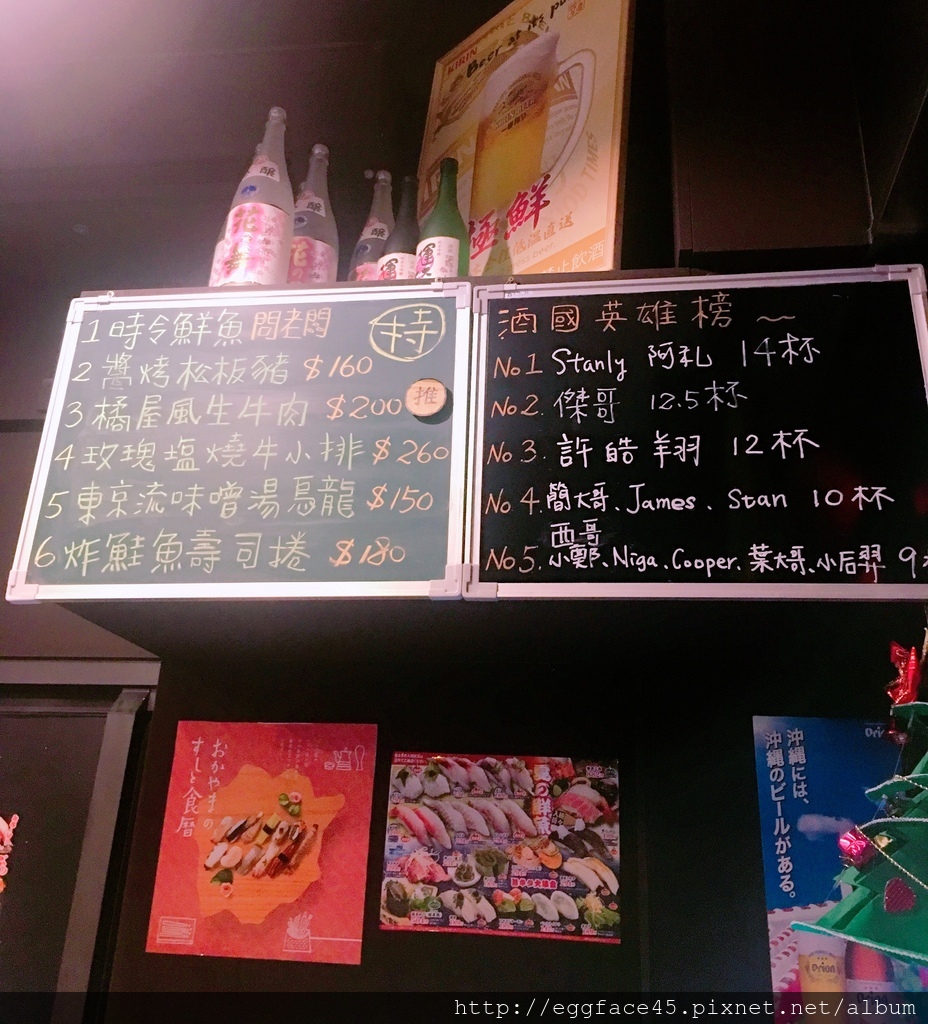 KIRIN
Beer
極鮮
低溫直送
止飲酒
醸
醸
醸
花の舞
1 時令鮮魚 問老闆
特
2 醬烤松板豬 $160
3 橘屋風生牛肉 $200
推
4 玫瑰塩燒牛小排 $260
5 東京流味噌湯烏龍 $150
6 炸鮭魚壽司捲 $180
酒國英雄榜～
No 1 Stanly 阿札 14杯
No 2. 傑哥 12.5杯
No 3. 許皓翔 12杯
No 4. 簡大哥、James、Stan 10杯
西哥
No 5. 小鄭、Niga、Cooper、葉大哥、小后羿 9
おかやまの
すしと食暦
夏の
沖縄には、
沖縄のビールがある。
Orion
http://eggface45.pixnet.net/album